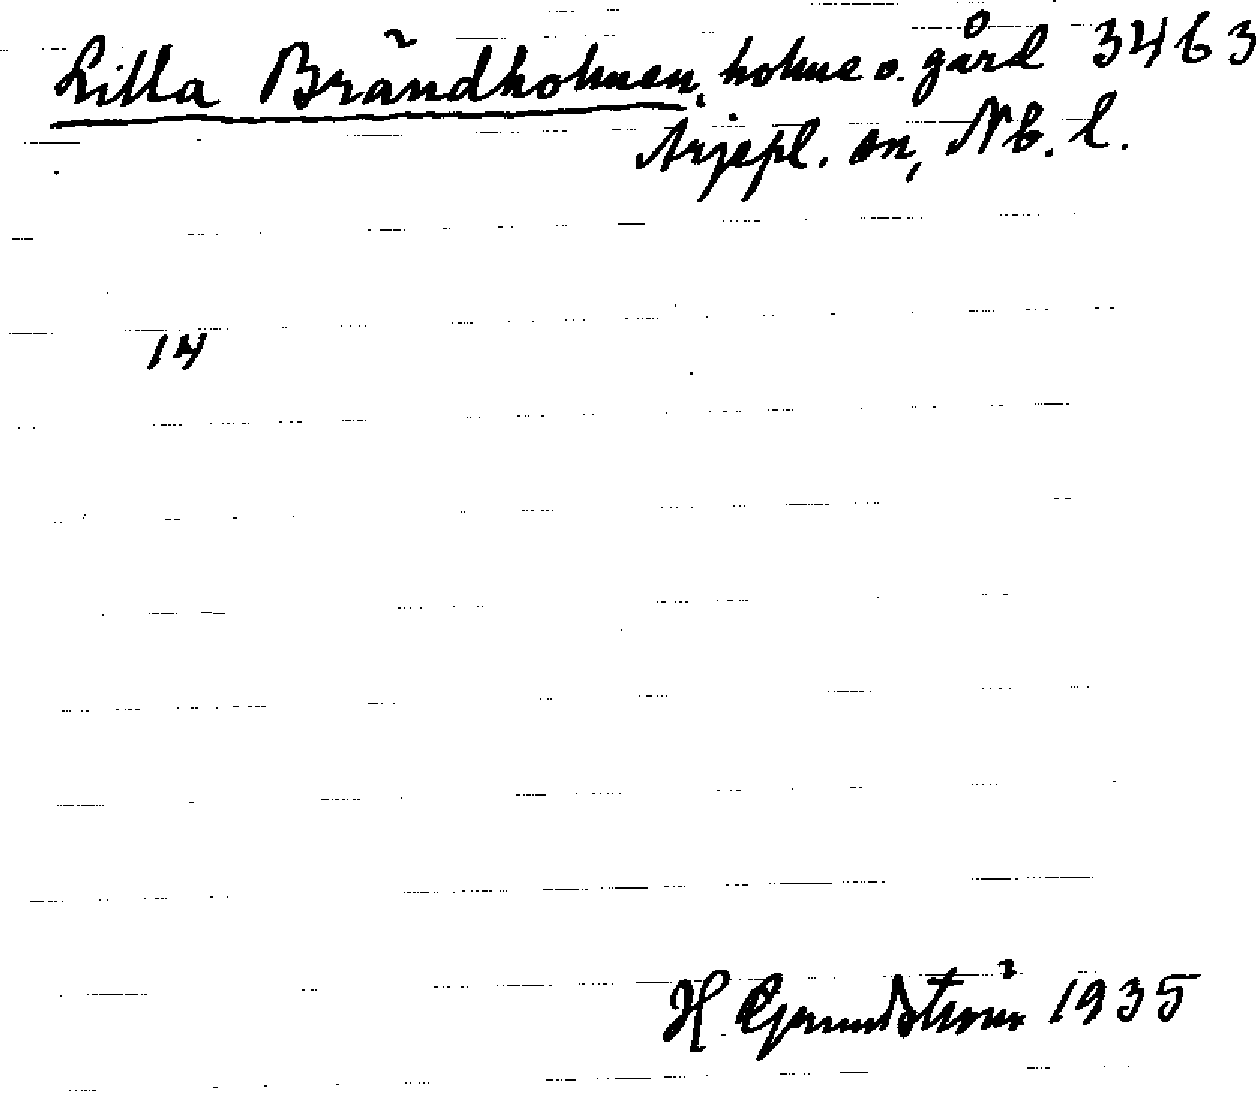 Lilla Brändholmen, holme o. gård 3463
Arjepl. sn, Nb. l.
14
H. Grundström 1935